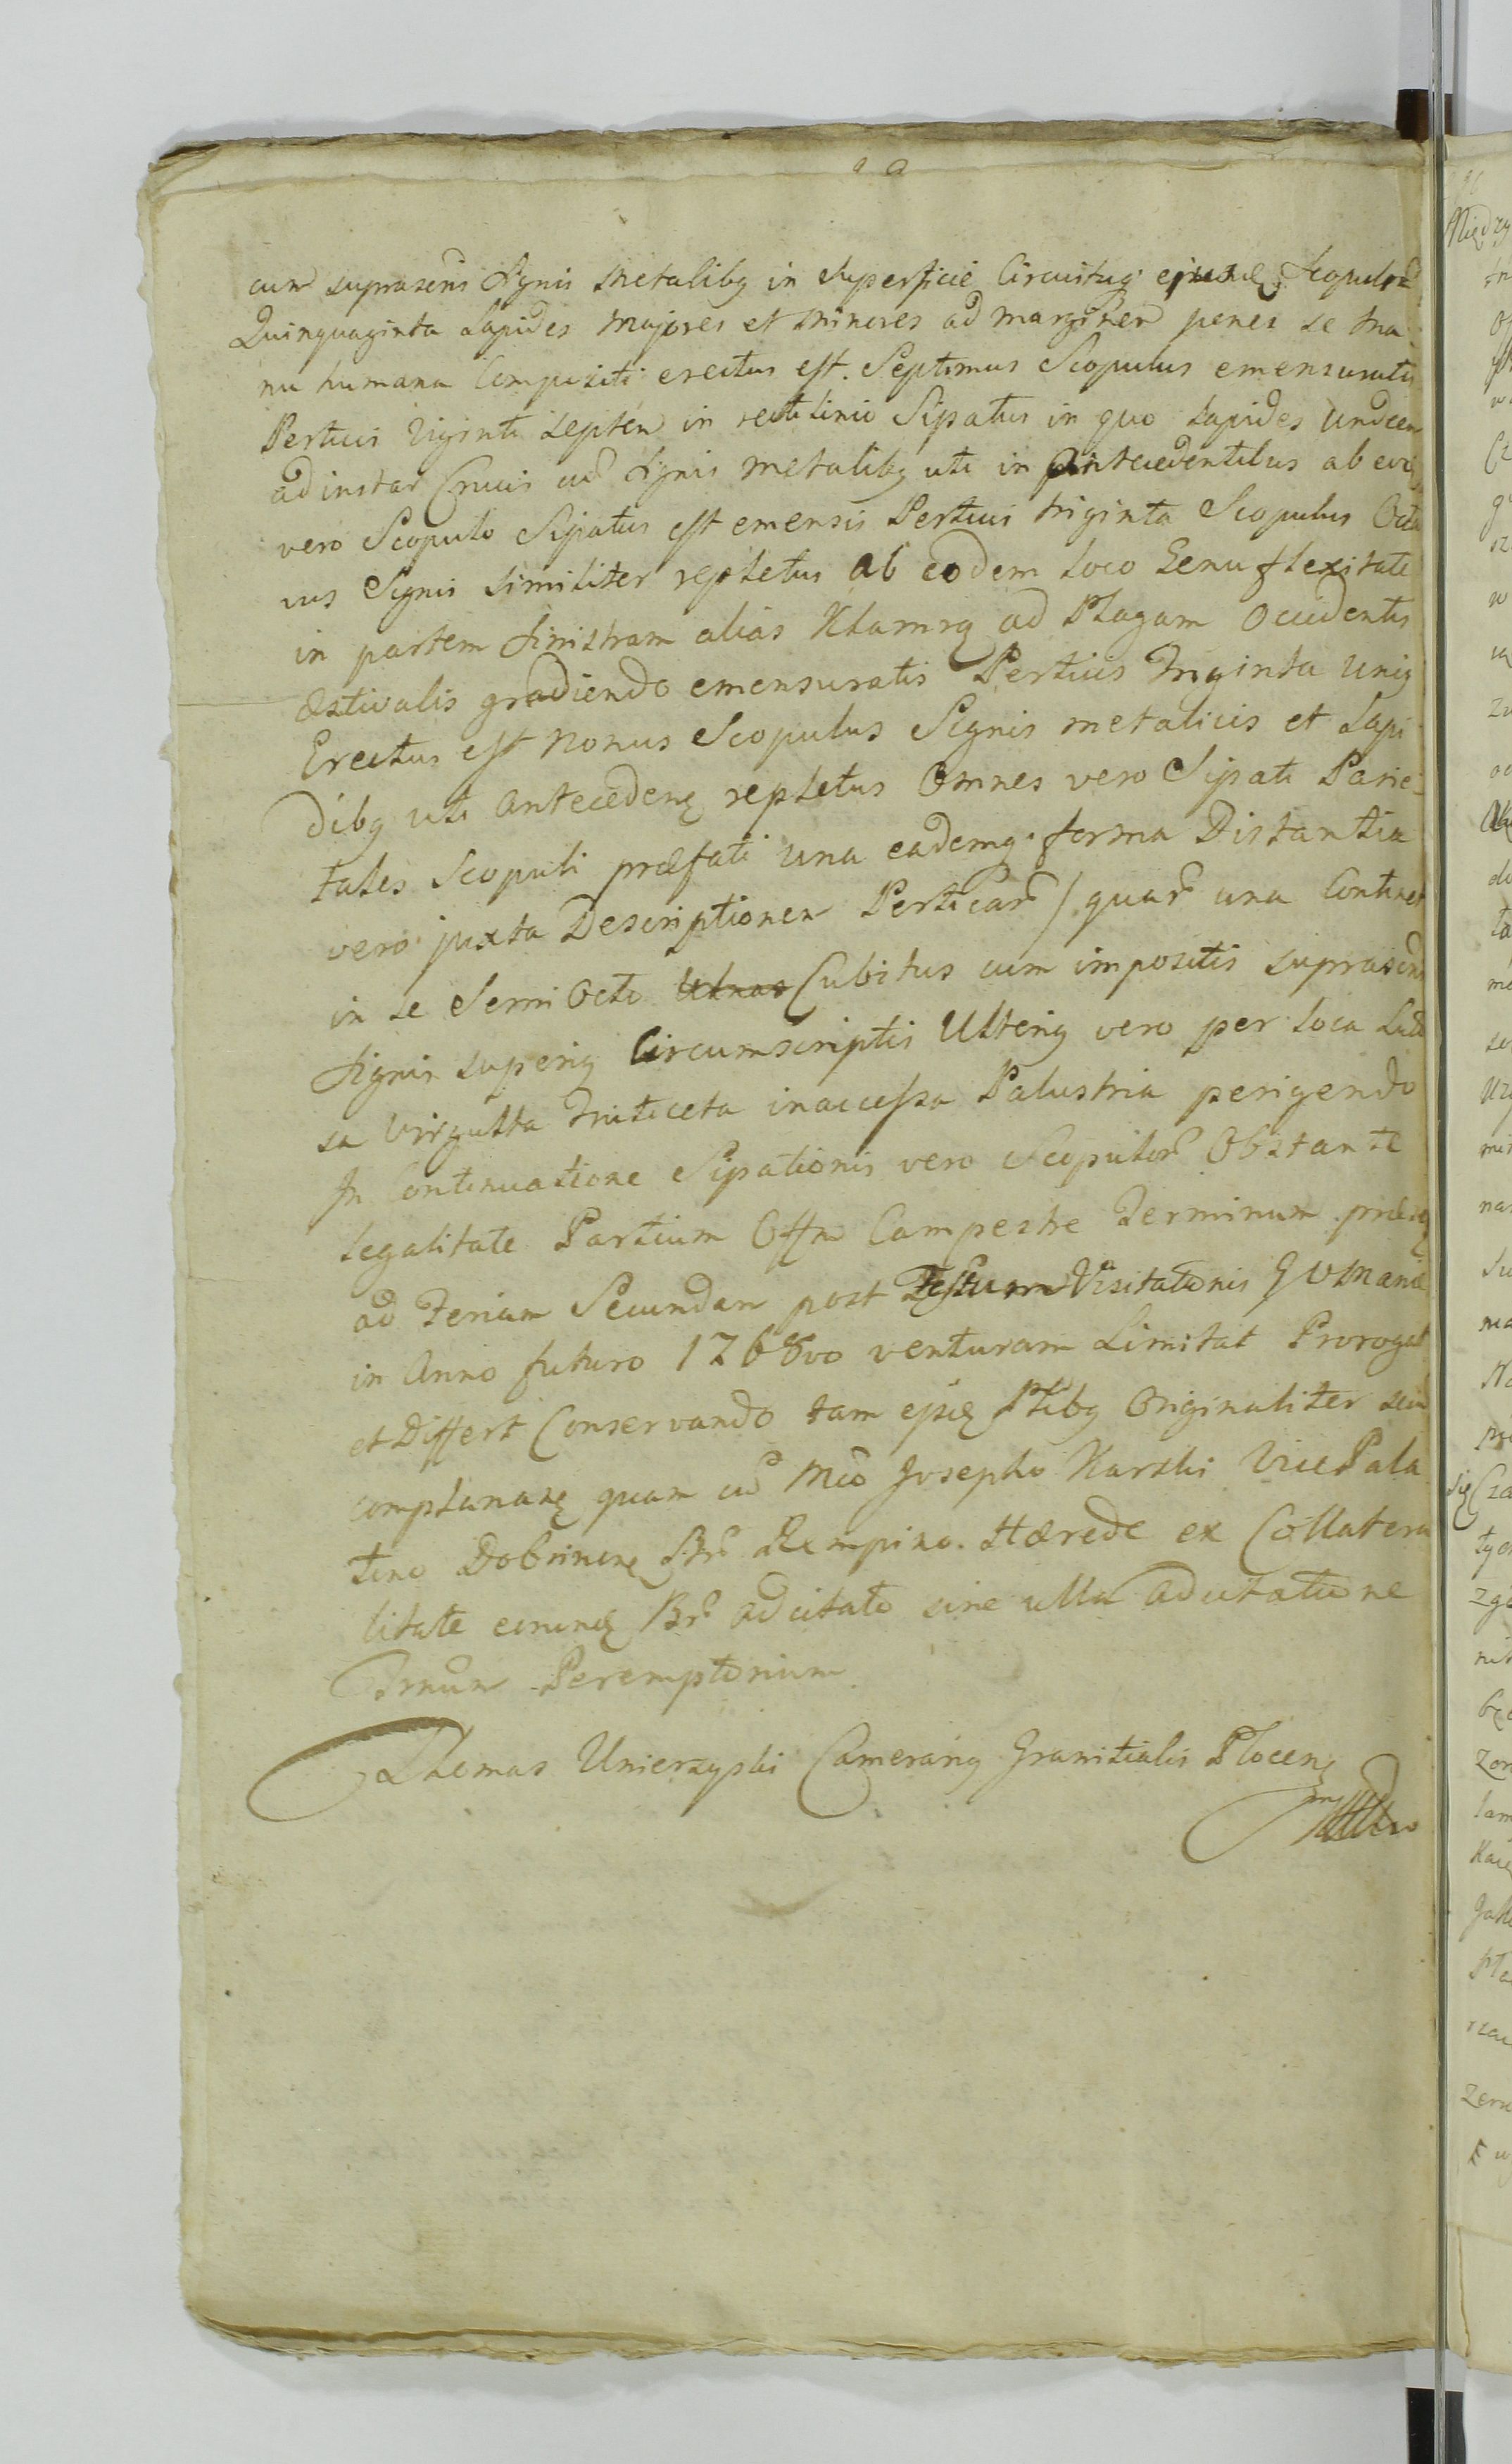 cum suprascris Signis Metalibq in Superficie Circuitus ejusdq Scopulus
Quinquaginta Lapides Majores et Minores ad Marginem penes se ma-
nu humana Compositi erectus est. Septimus Scopulus emensuratis
Perticis Viginti Septem in rectilinio Sipatus in quo Lapides Undecem
ad instar Crucis cum Signis Metalibq uti in Antecedentibus ab eoq
vero Scopulo Sipatus est emensis Perticis triginta Scopulus Octa
vus Signis similiter repletus ab eodem Loco Genuflexitate
in partem Sinistram alias Klamrą ad Plagam Occidentis
Æstivalis gradiendo emensuratis Perticis Triginta Unis
Erectus est Nonus Scopulus Signis metalicis et Lapi-
dibq uti antecedenq repletus Omnes vero Sipati Parie-
tales Scopuli præfati una eademq forma Distantia
vero juxta Descriptionem Perticar /. quar una Continet
in se Semi Octo Ulnas Cubitus cum impositis suprascris
Signis superiq Circumscriptis Ulteriq vero per Loca
sa Virgulta Fruticeta inaccessa Palustria perigendo
In Continuatione Sipationis vero Scopulor Obstante
Legalitate Partium Offm Campestre Terminum præsq
ad Feriam Secundam post Festum Visitationis Mariæ
in Anno futuro 1768vo venturam Limitat Prorogat
et Differt Conservando tam ejsq Ptibq Originaliter seu
complanarq quam cum Mco Josepho Karski Vice Pala
tino Dobrinenq Rempino. Hærede ex Collatera
litate eorundq Br adcitato sine ulla adcitatione
Trmum Peremptorium
Thomas Unierzyski Camerariq Granitialis Plocenq
mp